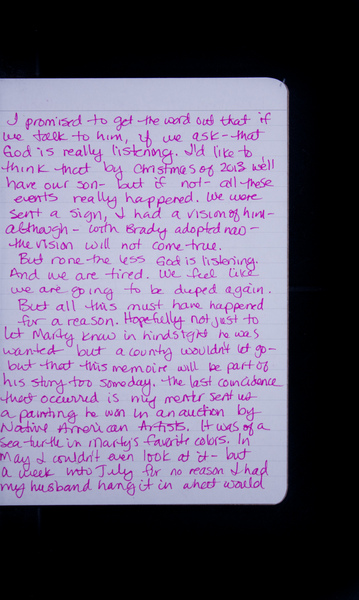 I promised to get the word out that if
we talk to him, if we ask - that
God is really listening. I'd like to
think that by Christmas of 2013 we'll
have our son - but if not - all these
events really happened. We were
sent a sign, I had a vision of him -
although - with Brady adopted now -
the vision will not come true.
But none the less God is listening.
And we are tired. We feel like
we are going to be duped again.
But all this must have happened
for a reason. Hopefully not just to
let Marty know in hindsight he was
wanted but a county wouldn't let go -
but that this memoire will be part of
his story too someday. The last coincidence
that occurred is my mentor sent us
a painting he won in an auction by
Native American Artists. It was of a
sea-turtle in Marty's favorite colors. In
May I couldn't even look at it - but
a week into July for no reason I had
my husband hang it in what would